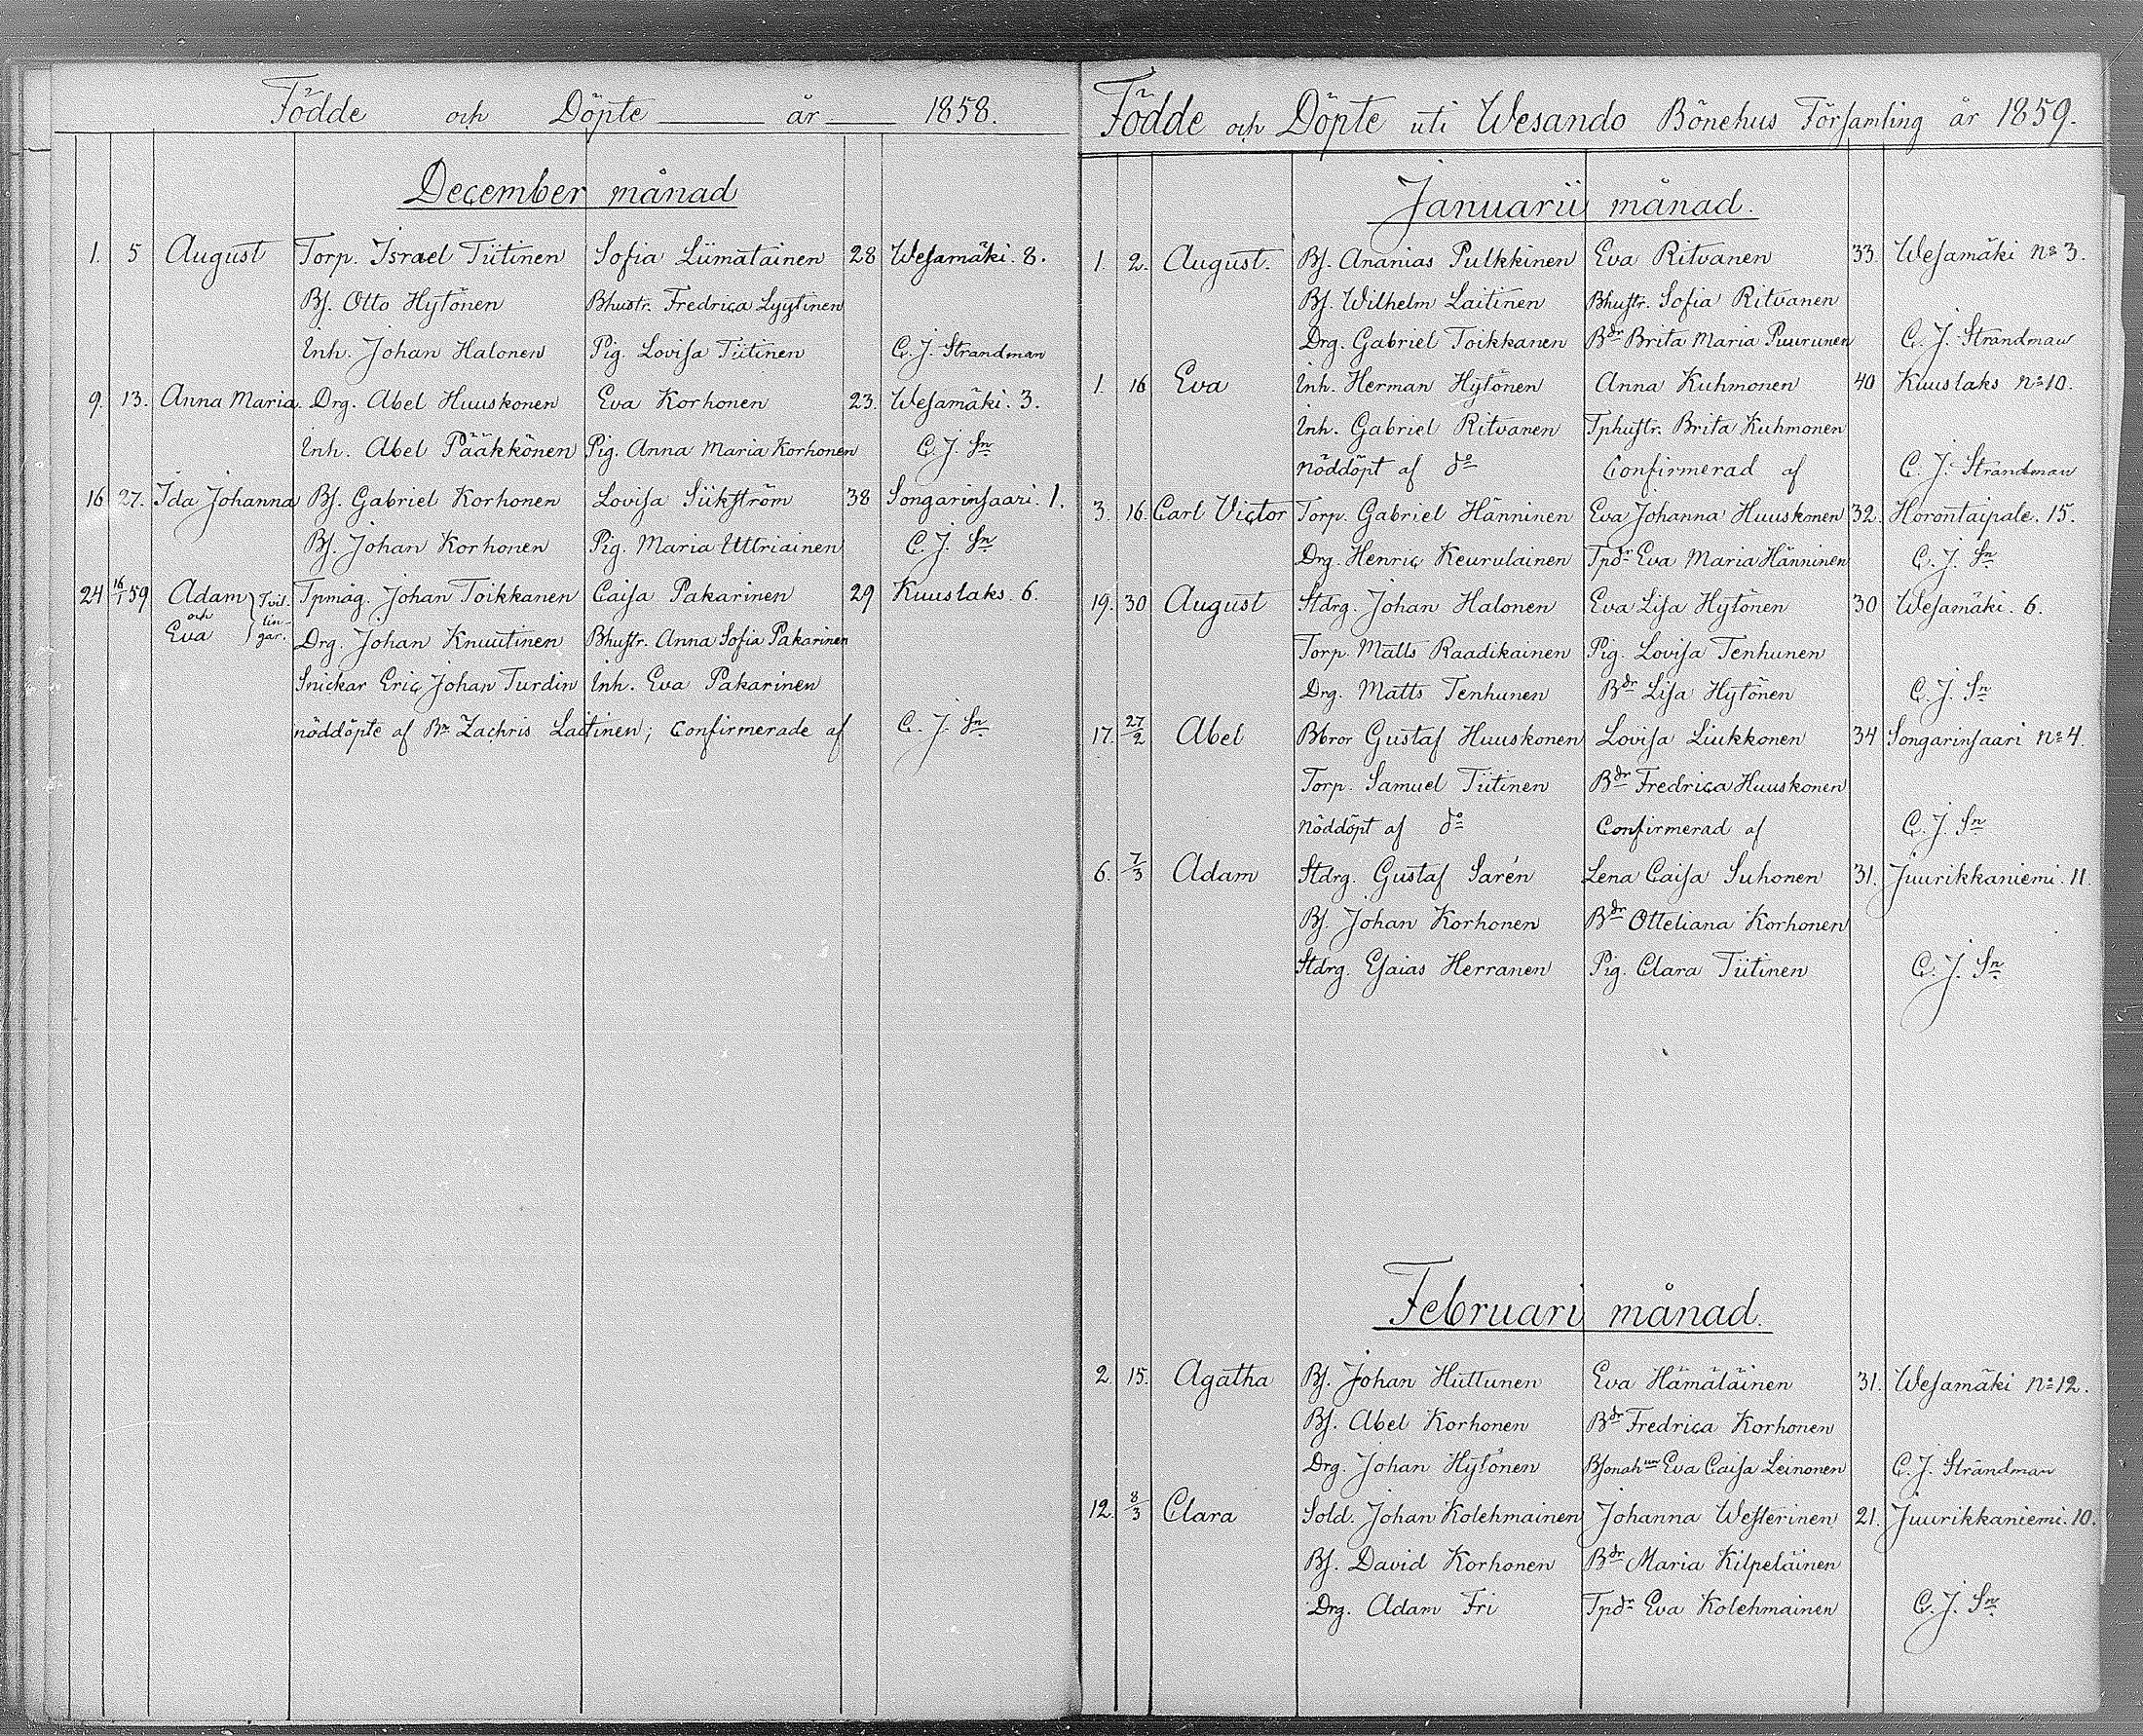 Födde och Döpte ___ år ___ 1858.
December månad
1. 5 August Torp. Israel Tiitinen Sofia Liimatainen 28 Wesamäki. 8.
Bs. Otto Hytönen Bhustr. Fredrica Lyytinen
Inh. Johan Halonen Pig. Lovisa Tiitinen C. J. Strandman
9. 13. Anna Maria. Drg. Abel Huuskonen Eva Korhonen 23. Wesamäki. 3.
Inh. Abel Pääkkönen Pig. Anna Maria Korhonen C. J. Sn
16 27. Ida Johanna Bs. Gabriel Korhonen Lovisa Siikström 38 Songarinsaari. 1.
Bs. Johan Korhonen Pig. Maria Uttriainen C. J. Sn
24 16/1 59 Adam och Eva } Tvillingar. Tpmåg. Johan Toikkanen Caisa Pakarinen 29 Kuuslaks. 6.
Drg. Johan Knuutinen Bhustr. Anna Sofia Pakarinen
Snickar Eric Johan Turdin Inh. Eva Pakarinen
nöddöpte af Bn Zachris Laitinen; Confirmerade af C. J. Sn
Födde och Döpte uti Wesando Bönehus Församling år 1859.
Januarii månad.
1. 2. August. Bs. Ananias Pulkkinen Eva Ritvanen 33. Wesamäki No 3.
Bs. Wilhelm Laitinen Bhustr. Sofia Ritvanen
Drg. Gabriel Toikkanen Bdr Brita Maria Puurunen C. J. Strandman
1. 16 Eva Inh. Herman Hytönen Anna Kuhmonen 40 Kuuslaks No 10.
Inh. Gabriel Ritvanen Tphustr. Brita Kuhmonen
nöddöpt af do Confirmerad af C. J. Strandman
3. 16. Carl Victor Torp. Gabriel Hänninen Eva Johanna Huuskonen 32. Horontaipale. 15.
Drg. Henric Keurulainen Tpdr Eva Maria Hänninen C. J. Sn
19. 30 August Stdrg. Johan Halonen Eva Lisa Hytönen 30 Wesamäki. 6.
Torp. Matts Raadikainen Pig. Lovisa Tenhunen
Drg. Matts Tenhunen Bdr Lisa Hytönen C. J. Sn
17. 27/2 Abel Bbror Gustaf Huuskonen Lovisa Liukkonen 34 Songarinsaari No 4.
Torp. Samuel Tiitinen Bdr Fredrica Huuskonen
nöddöpt af do Confirmerad af C. J. Sn
6. 7/3 Adam Stdrg. Gustaf Sarén Lena Caisa Suhonen 31. Juurikkaniemi. 11.
Bs. Johan Korhonen Bdr Otteliana Korhonen
Stdrg. Esaias Herranen Pig. Clara Tiitinen C. J. Sn
Februari månad.
2. 15. Agatha Bs. Johan Huttunen Eva Hämäläinen 31. Wesamäki No 12.
Bs. Abel Korhonen Bdr Fredrica Korhonen
Drg. Johan Hytönen Bsonahun Eva Caisa Leinonen C. J. Strandman
12. 8/3 Clara Sold. Johan Kolehmainen Johanna Westerinen 21. Juurikkaniemi. 10.
Bs. David Korhonen Bdr Maria Kilpeläinen
Drg. Adam Fri Tpdr Eva Kolehmainen C. J. Sn